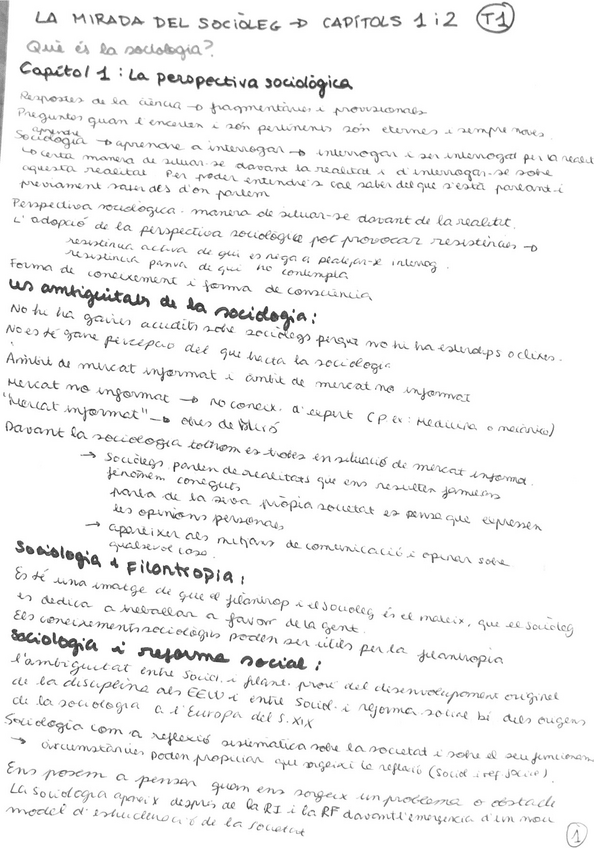 LA MIRADA DEL SOCIÒLEG → CAPÍTOLS 1 i 2 T1
Què és la sociologia?
Capítol 1: La perspectiva sociològica
Respostes de la ciència → fragmentàries i provisionals
Preguntes quan s'encerten i són pertinents són eternes i sempre noves.
aprendre
Sociologia → aprendre a interrogar → interrogar i ser interrogat per la realit
→ certa manera de situar-se davant la realitat i d'interrogar-se sobre
aquesta realitat Per poder entendre's cal saber del que s'està parlant i
prèviament saber des d'on parlem
Perspectiva sociològica. manera de situar-se davant de la realitat.
L'adopció de la perspectiva sociològica pot provocar resistències →
resistència activa de qui es nega a
resistència passiva de qui no contempla
Forma de coneixement i forma de consciència
Les ambigüitats de la sociologia:
No hi ha gaires acudits sobre sociòlegs perquè no hi ha estereotips o clixés.
No es té gaire percepció del que tracta la sociologia
Àmbit de mercat informat i àmbit de mercat no informat
Mercat no informat → no coneix. d'expert (P. ex: Medicina o mecànica)
"Mercat informat" → obres de
Davant la sociologia tothom es troba en situació de mercat informa.
→ Sociòlegs parlen de realitats que ens resulten familiars
fenòmen coneguts
parla de la seva pròpia societat es pensa que expressen
les opinions personals
→ aparèixer als mitjans de comunicació i opinar sobre
qualsevol cosa.
Sociologia i Filantropia:
Es té una imatge de que el filantrop i el sociòleg és el mateix, que el sociòleg
es dedica a treballar a favor de la gent.
Els coneixements sociològics poden ser útils per la filantropia
Sociologia i reforma social:
L'ambigüitat entre Sociol. i filant. prové del desenvolupament original
de la disciplina als EEUU i entre Sociol. i reforma social bé dels orígens
de la sociologia a l'Europa del S. XIX
Sociologia com a reflexió sistemàtica sobre la societat i sobre el seu funcionam
→ circumstàncies poden propiciar que sorgeixi la reflexió (Sociol i ref. social).
Ens posem a pensar quan ens sorgeix un problema o obstacle
La sociologia apareix després de la RI i la RF davant l'emergència d'un nou
model d'estructuració de la societat
1